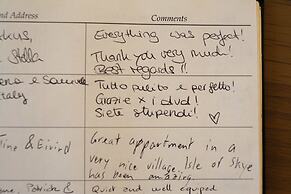 nd Address Comments
Everything was perfect!
Stella Thank you very much!
Best regards!!
e Samuele Tutto pulito e perfetto!
Grazie x i dvd!
Siete stupendi! ♡
Tine & Eivind Great appartment in a
very nice village, Isle of Skye
has been amazing.
Patrick & Quiet and well equiped